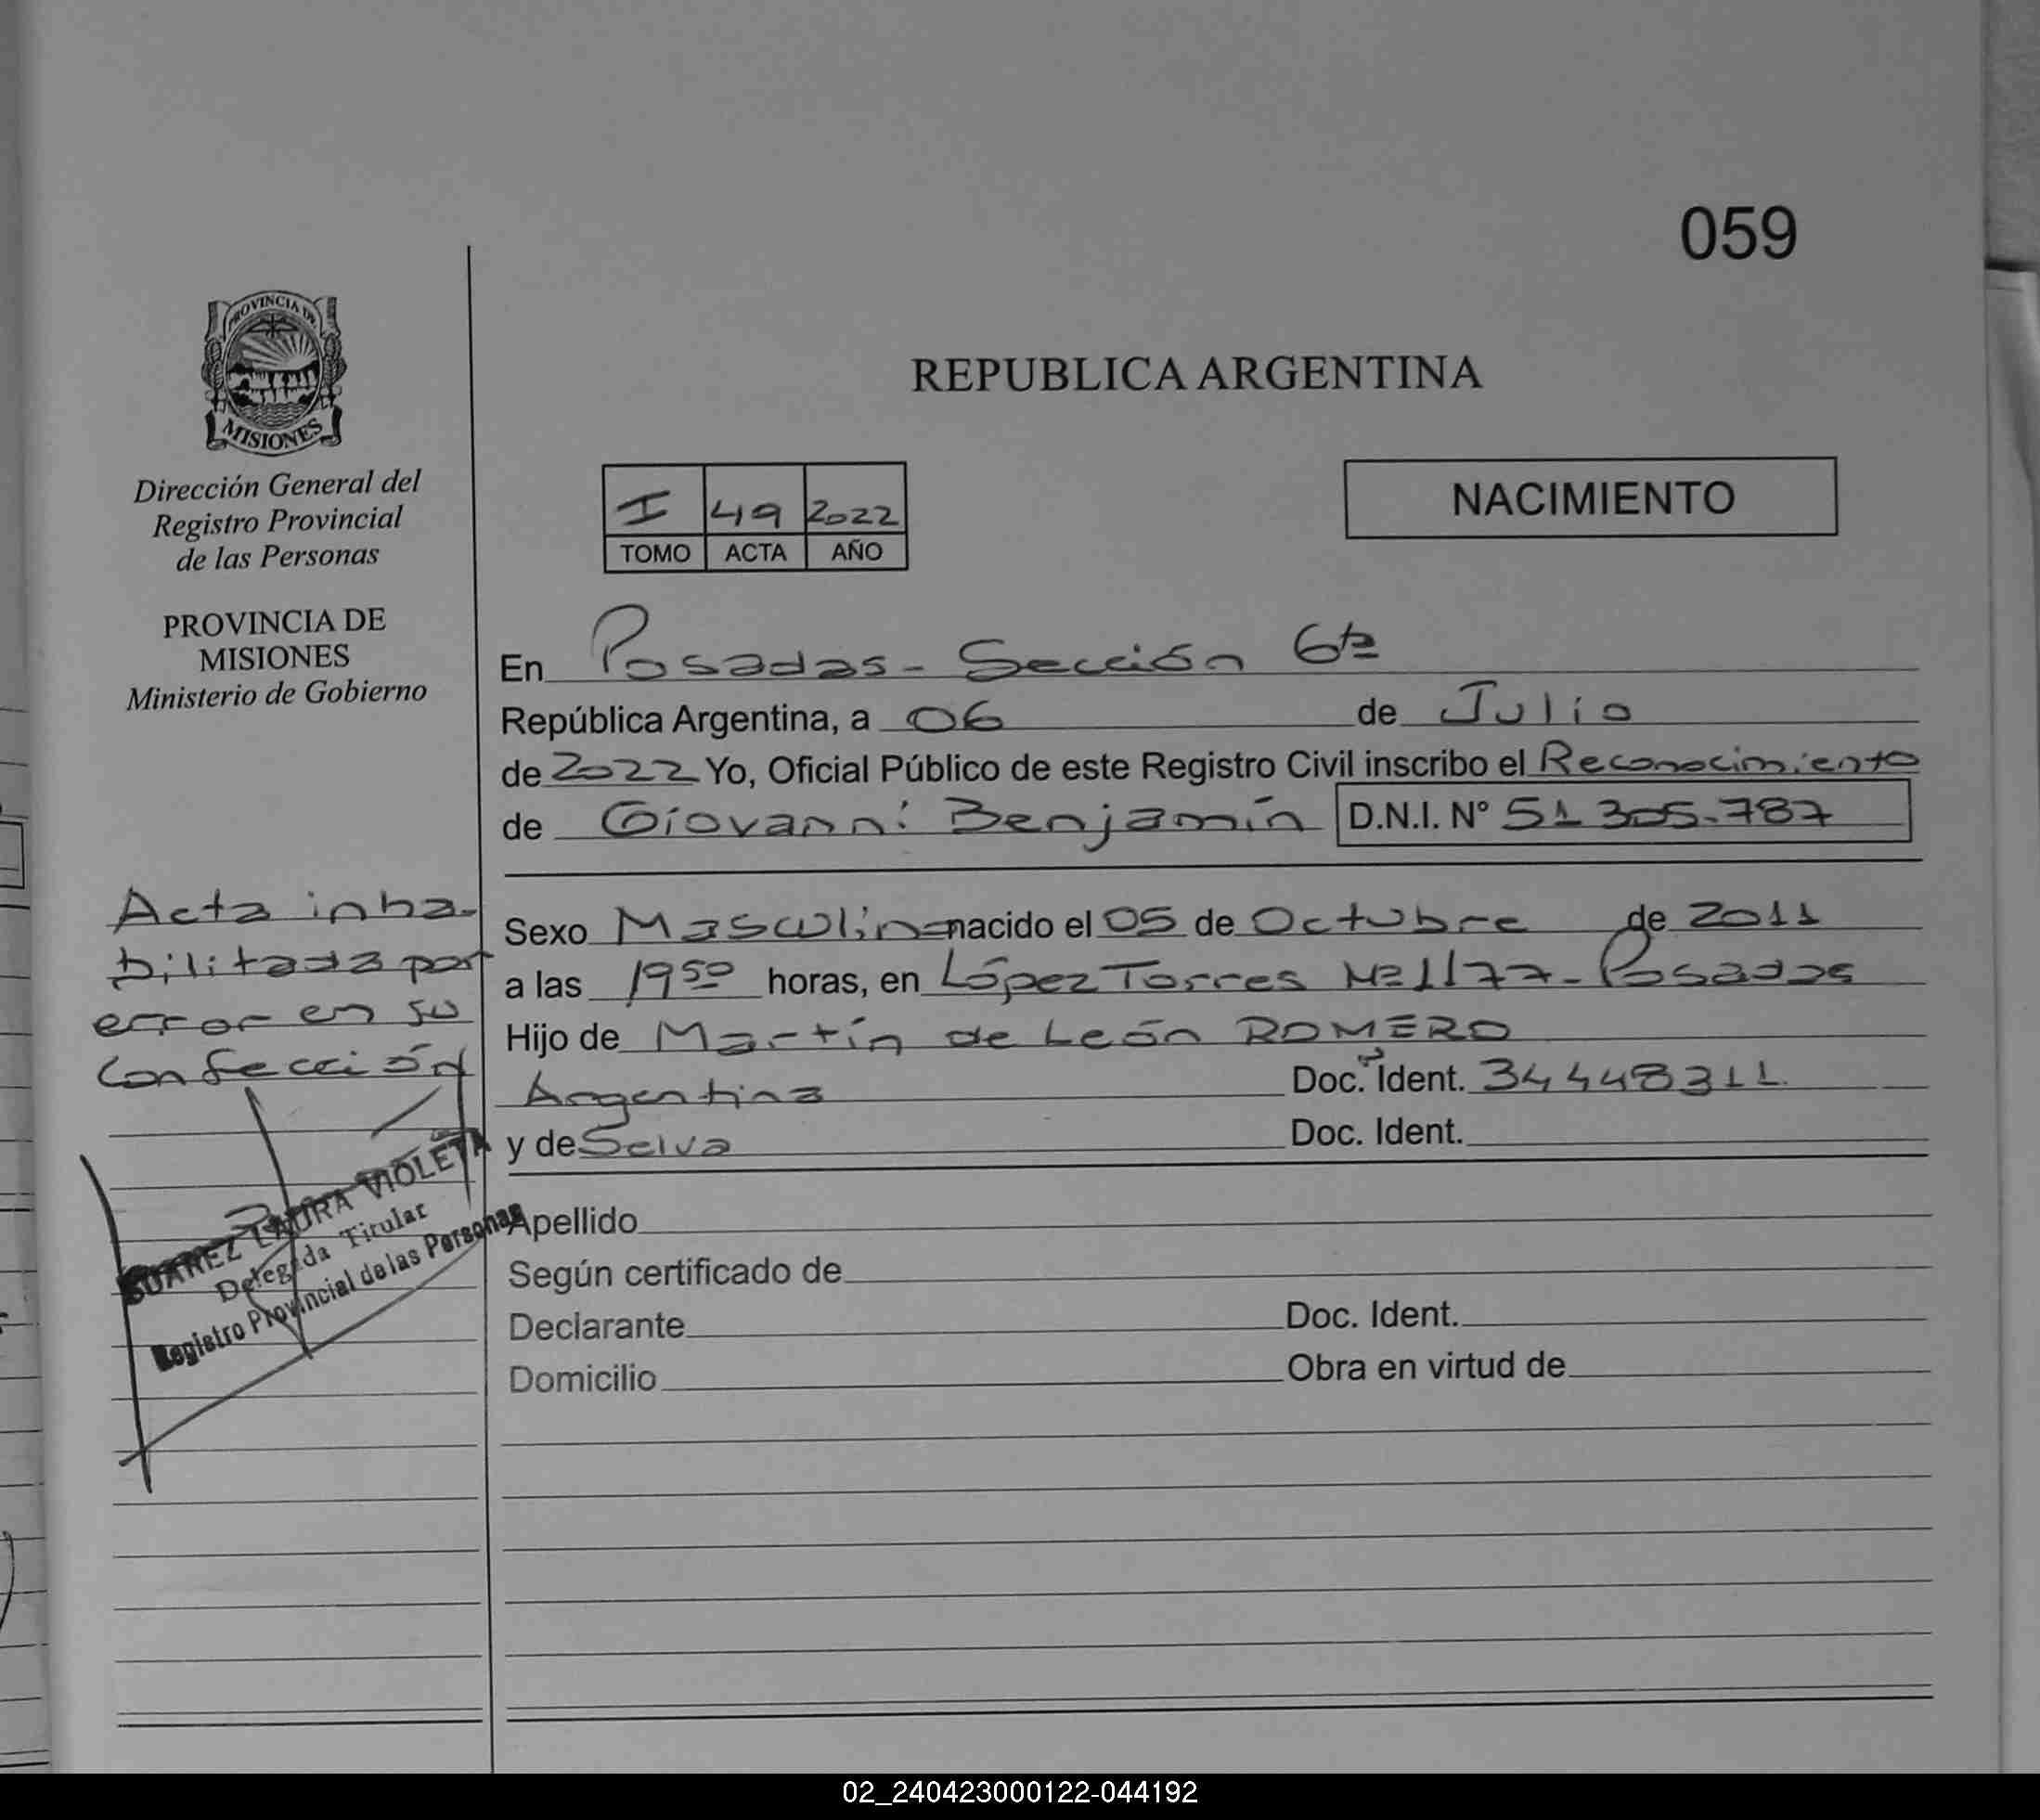 059
PROVINCIA DE
MISIONES
Dirección General del
Registro Provincial
de las Personas
PROVINCIA DE
MISIONES
Ministerio de Gobierno
Acta inha-
bilitada por
error en su
confección
SUAREZ LAURA VIOLETA
Delegada Titular
Registro Provincial de las Personas
REPUBLICA ARGENTINA
I 49 2022
TOMO ACTA AÑO
NACIMIENTO
En Posadas - Sección 6ta
República Argentina, a 06 de Julio
de 2022 Yo, Oficial Público de este Registro Civil inscribo el Reconocimiento
de Giovanni Benjamín D.N.I. N° 51 305.787
Sexo Masculino nacido el 05 de Octubre de 2011
a las 19 50 horas, en López Torres Nº 1177 - Posadas
Hijo de Martín de León ROMERO
Argentina Doc. Ident. 34448311
y de Selva Doc. Ident.
Apellido
Según certificado de
Declarante Doc. Ident.
Domicilio Obra en virtud de
02_240423000122-044192